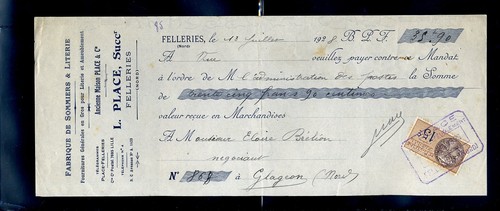 FABRIQUE DE SOMMIERS & LITERIE
Fournitures Générales en Gros pour Literie et Ameublement.
Ancienne Maison PLACE & Cie
L. PLACE, Succr
FELLERIES
(NORD)
TÉLÉGRAMMES
PLACE-FELLERIES
TÉLÉPHONE N° 4
FELLERIES, le 13 Juillet 1928 B.P.F. 35-90
(Nord)
A Vue veuillez payer contre ce Mandat
à l'ordre de M l'administration des postes la Somme
de trente cinq francs 90 centimes
valeur reçue en Marchandises
A Monsieur Brition
négociant
N° 807 à Glageon (Nord)
15c